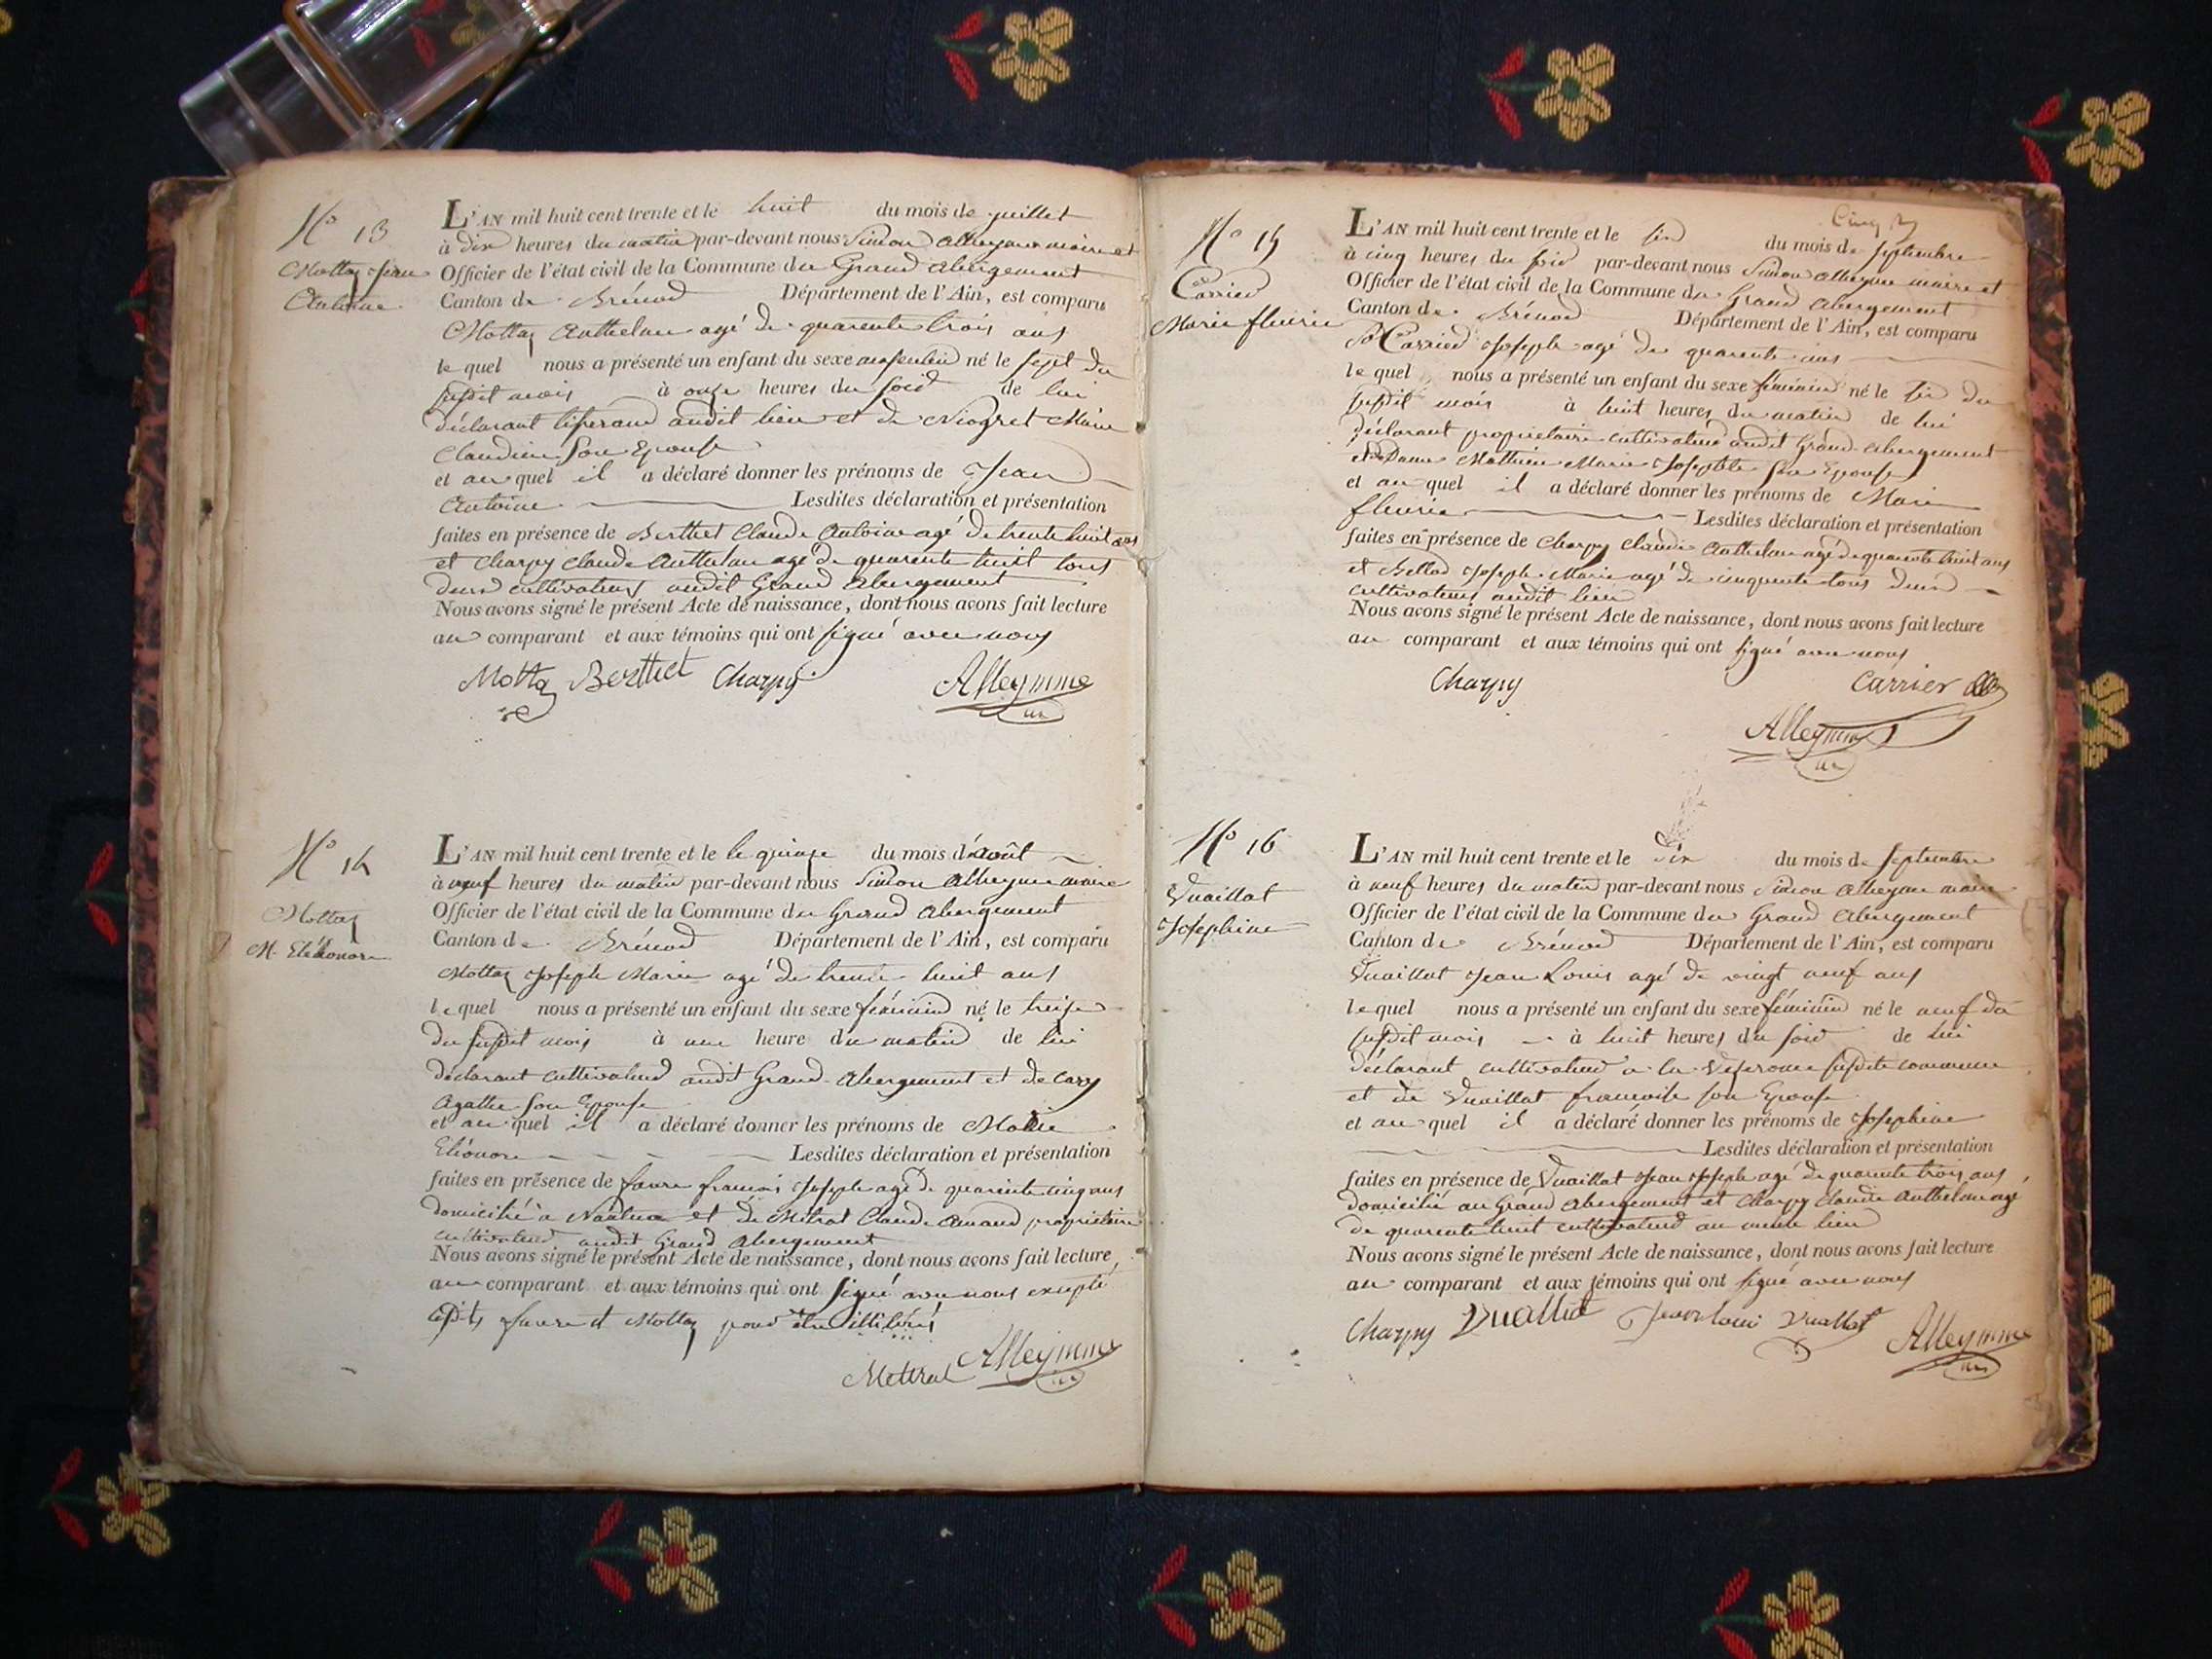 N° 13
Mottaz Jean
Antoine
L'AN mil huit cent trente et le huit du mois de juillet
à dix heures du matin par-devant nous Simon Alleyme maire et
Officier de l'état civil de la Commune du Grand abergement
Canton de Brénod Département de l'Ain, est comparu
Mottaz Anthelme agé de quarente trois ans
lequel nous a présenté un enfant du sexe masculin né le sept du
susdit mois à onze heures du soir de lui
déclarant tisserand audit lieu et de Niogret Marie
Claudine son Epouse
et au quel il a déclaré donner les prénoms de Jean
Antoine Lesdites déclaration et présentation
faites en présence de Berthet Claude Antoine agé de trente huit ans
et Charpy Claude Anthelme agé de quarente huit tous
deux cultivateurs audit Grand abergement
Nous avons signé le présent Acte de naissance, dont nous avons fait lecture
au comparant et aux témoins qui ont signé avec nous
Mottaz Berthet Charpy Alleymme
N° 14
Mottaz
M. Eléonore
L'AN mil huit cent trente et le le quinze du mois d'août
à neuf heures du matin par-devant nous Simon Alleyme maire
Officier de l'état civil de la Commune du Grand abergement
Canton de Brénod Département de l'Ain, est comparu
Mottaz Joseph Marie agé de trente huit ans
lequel nous a présenté un enfant du sexe féminin né le treize
du susdit mois à une heure du matin de lui
déclarant cultivateur audit Grand-abergement et de Cary
Agathe son Epouse
et au quel il a déclaré donner les prénoms de Marie
Eléonore Lesdites déclaration et présentation
faites en présence de favre françois Joseph agé de quarente cinq ans
domicilié à Nantua et de Métral Claude Amand propriétaire
cultivateur audit Grand abergement
Nous avons signé le présent Acte de naissance, dont nous avons fait lecture
au comparant et aux témoins qui ont signé avec nous excepté
favre et Mottaz pour être illitérés
Mettral Alleymme
N° 15
Carrier
Marie fleurie
L'AN mil huit cent trente et le six du mois de septembre
à cinq heures du soir par-devant nous Simon Alleyme maire et
Officier de l'état civil de la Commune du Grand abergement
Canton de Brénod Département de l'Ain, est comparu
Sr Carrier Joseph agé de quarente ans
lequel nous a présenté un enfant du sexe féminin né le six du
susdit mois à huit heures du matin de lui
déclarant propriétaire cultivateur audit Grand-abergement
et de Dame Mathieu Marie Josephte son Epouse
et au quel il a déclaré donner les prénoms de Marie
fleurie Lesdites déclaration et présentation
faites en présence de Charpy Claude Anthelme agé de quarente huit ans
et Bellod Joseph-Marie agé de cinquente tous deux
cultivateurs audit lieu
Nous avons signé le présent Acte de naissance, dont nous avons fait lecture
au comparant et aux témoins qui ont signé avec nous
Charpy Carrier
Alleymme
N° 16
Vuaillat
Josephine
L'AN mil huit cent trente et le dix du mois de septembre
à neuf heures du matin par-devant nous Simon Alleyme maire
Officier de l'état civil de la Commune du Grand abergement
Canton de Brénod Département de l'Ain, est comparu
Vuaillat Jean Louis agé de vingt neuf ans
lequel nous a présenté un enfant du sexe féminin né le neuf du
susdit mois à huit heures du soir de lui
déclarant cultivateur a la susdite commune
et de Vuaillat françoise son Epouse
et au quel il a déclaré donner les prénoms de Josephine
Lesdites déclaration et présentation
faites en présence de Vuaillat Jean Joseph agé de quarente trois ans
domicilié au Grand abergement et Charpy Claude Anthelme agé
de quarente huit cultivateur au même lieu
Nous avons signé le présent Acte de naissance, dont nous avons fait lecture
au comparant et aux témoins qui ont signé avec nous
Charpy Vuaillat Jean louis Vuaillat Alleymme